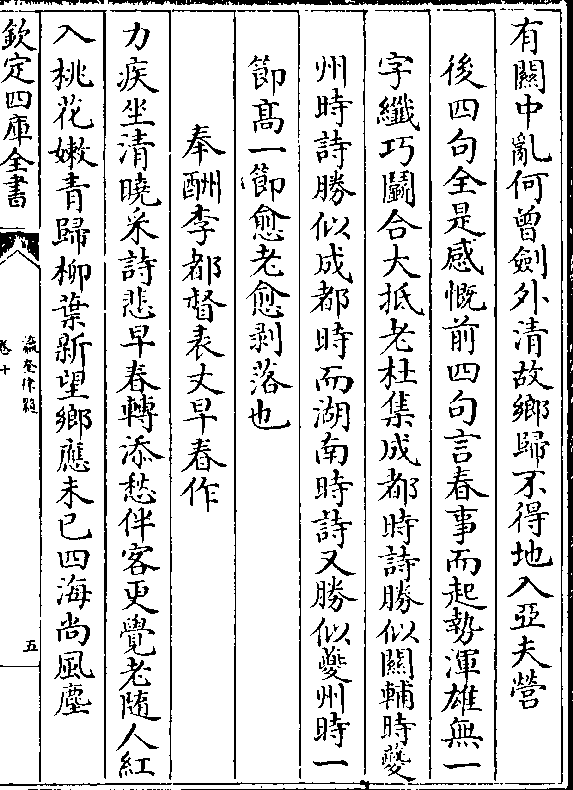 有關中亂何曾劍外清故鄉歸不得地入亞夫營
後四句全是感慨前四句言春事而起勢渾雄無一
字纖巧鬭合大抵老杜集成都時詩勝似關輔時夔
州時詩勝似成都時而湖南時詩又勝似夔州時一
節髙一節愈老愈剥落也
奉酬李都督表丈早春作
力疾坐清曉采詩悲早春轉添愁伴客更覺老隨人紅
入桃花嫩青歸柳葉新望鄉應未已四海尚風塵
欽定四庫全書
瀛奎律髓
卷十
五